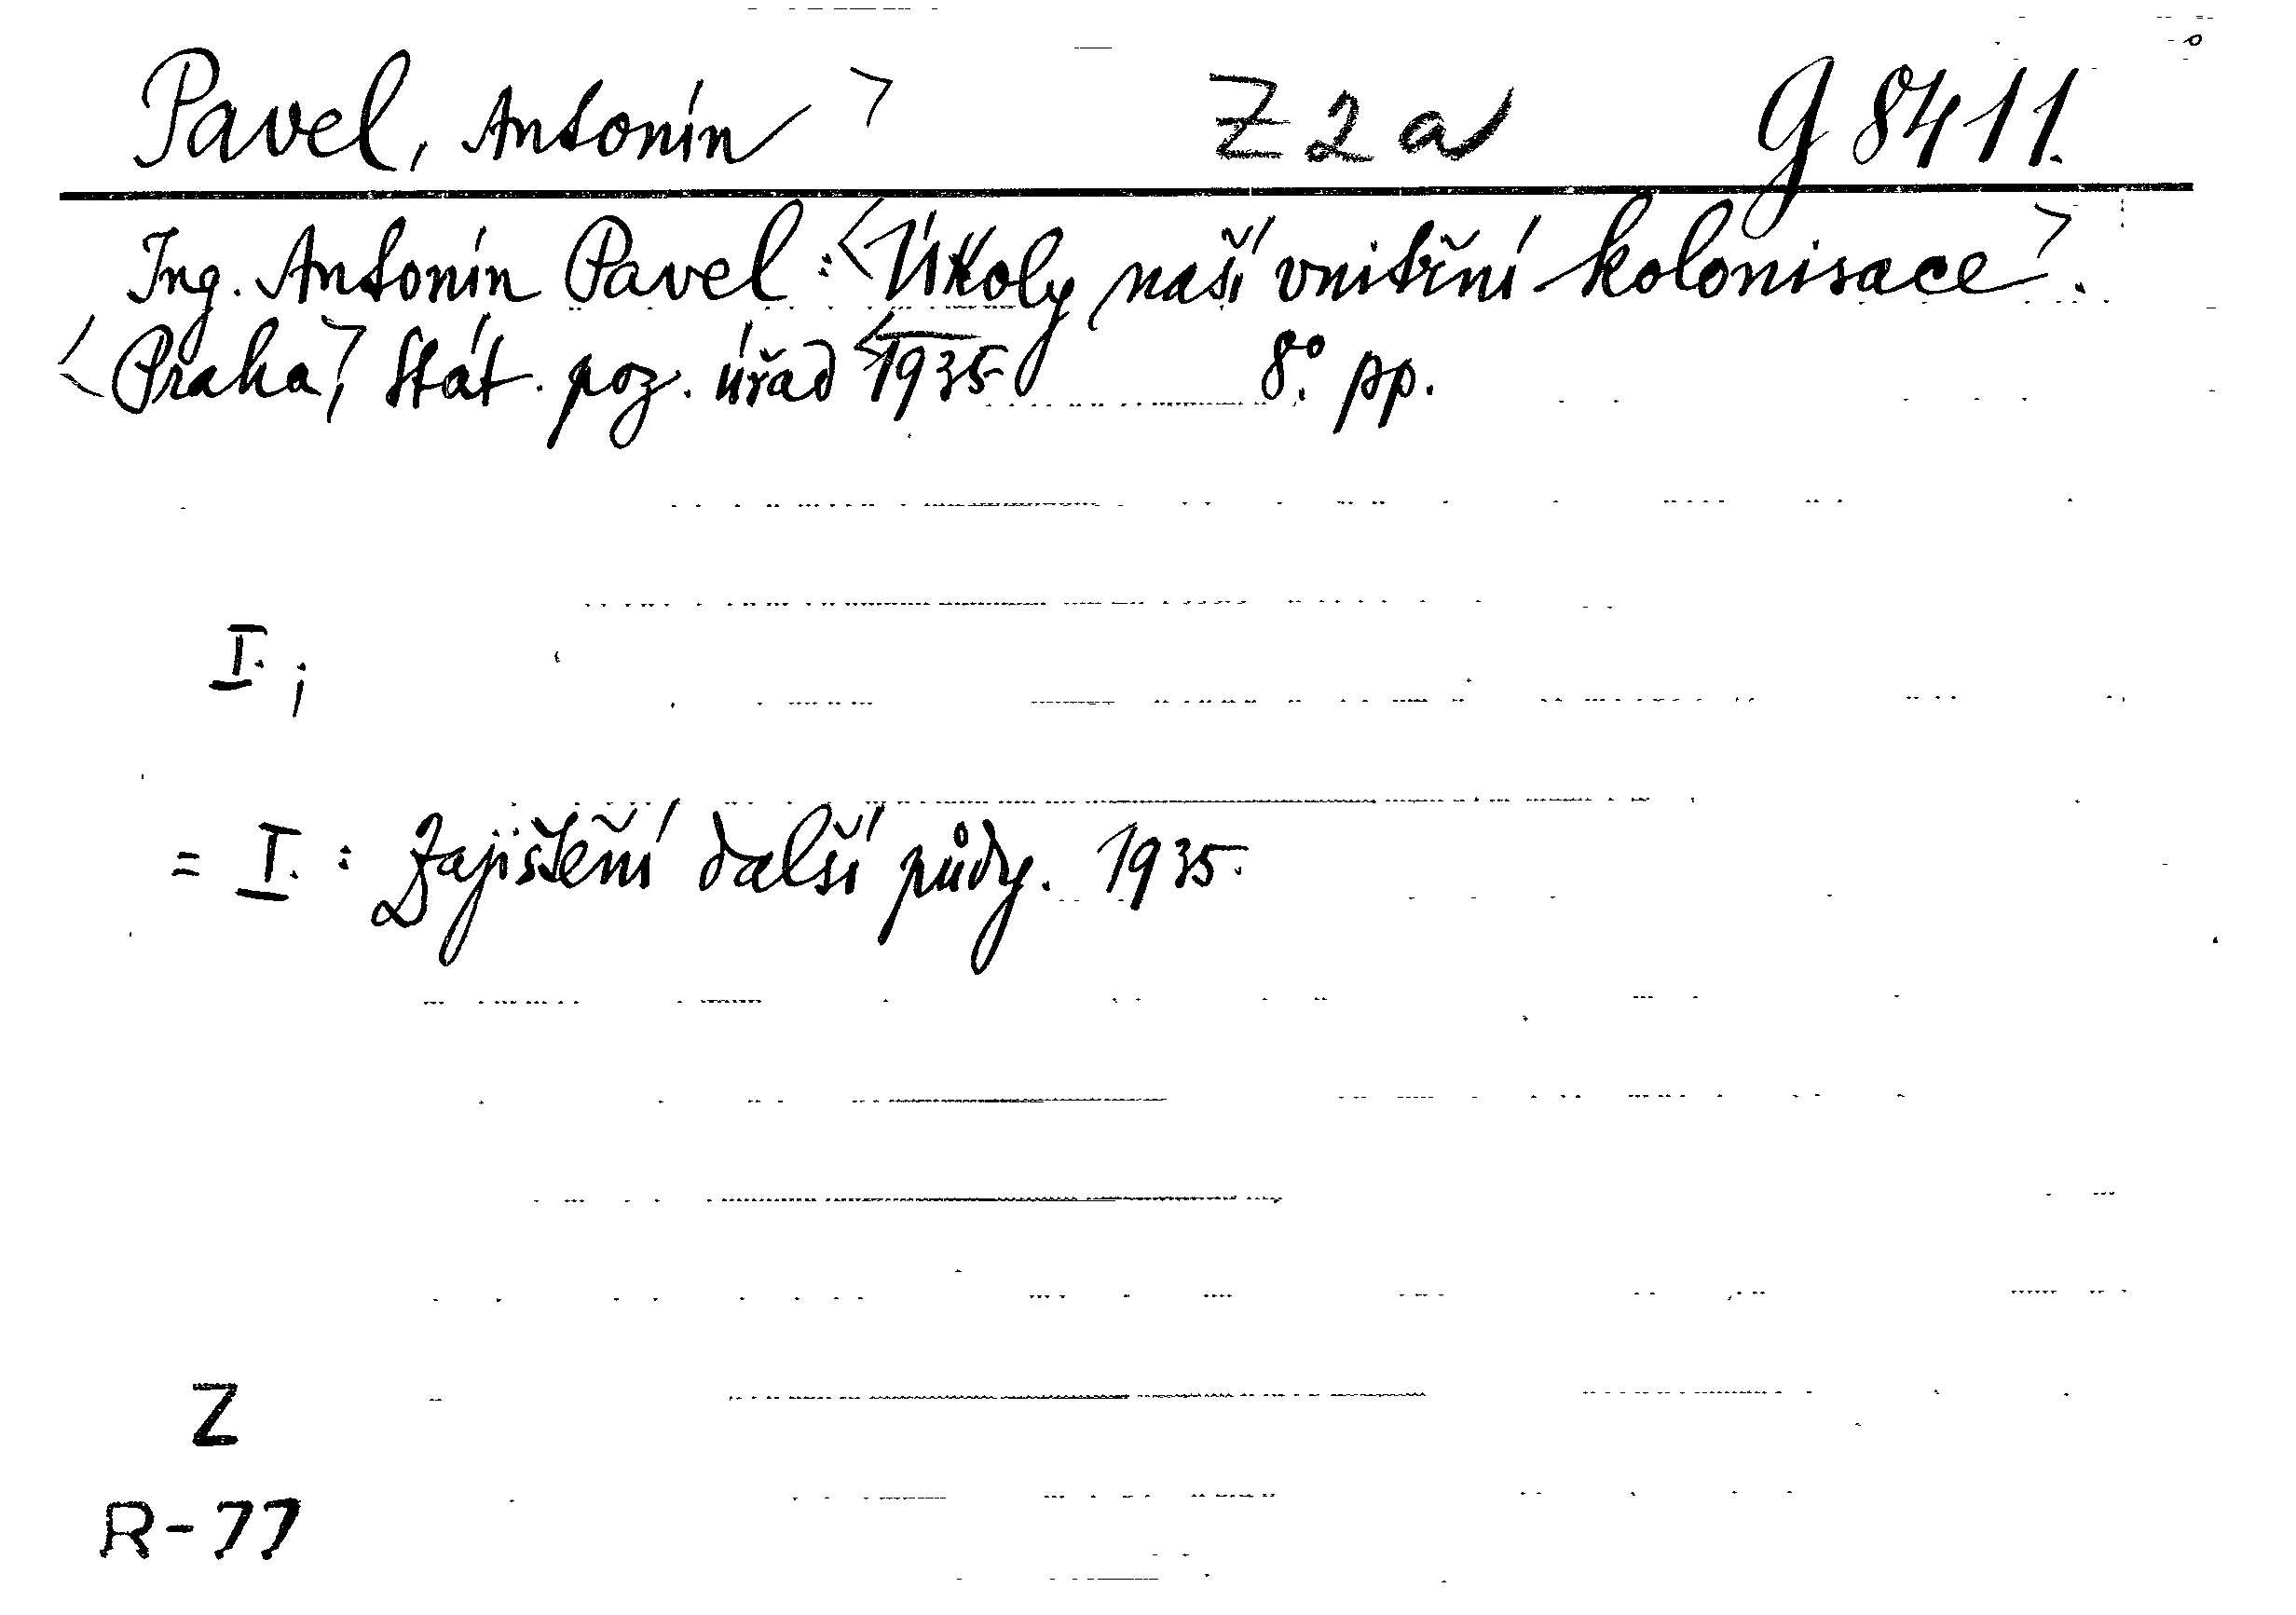 Pavel, Antonín > Z 2 a G 8411.
Ing. Antonín Pavel: <Úkoly naší vnitřní kolonisace>.
<Praha>, Stát. poz. úřad <1935 8°. pp.
I. ;
= I. : Zajištění další půdy. 1935.
Z
R-77